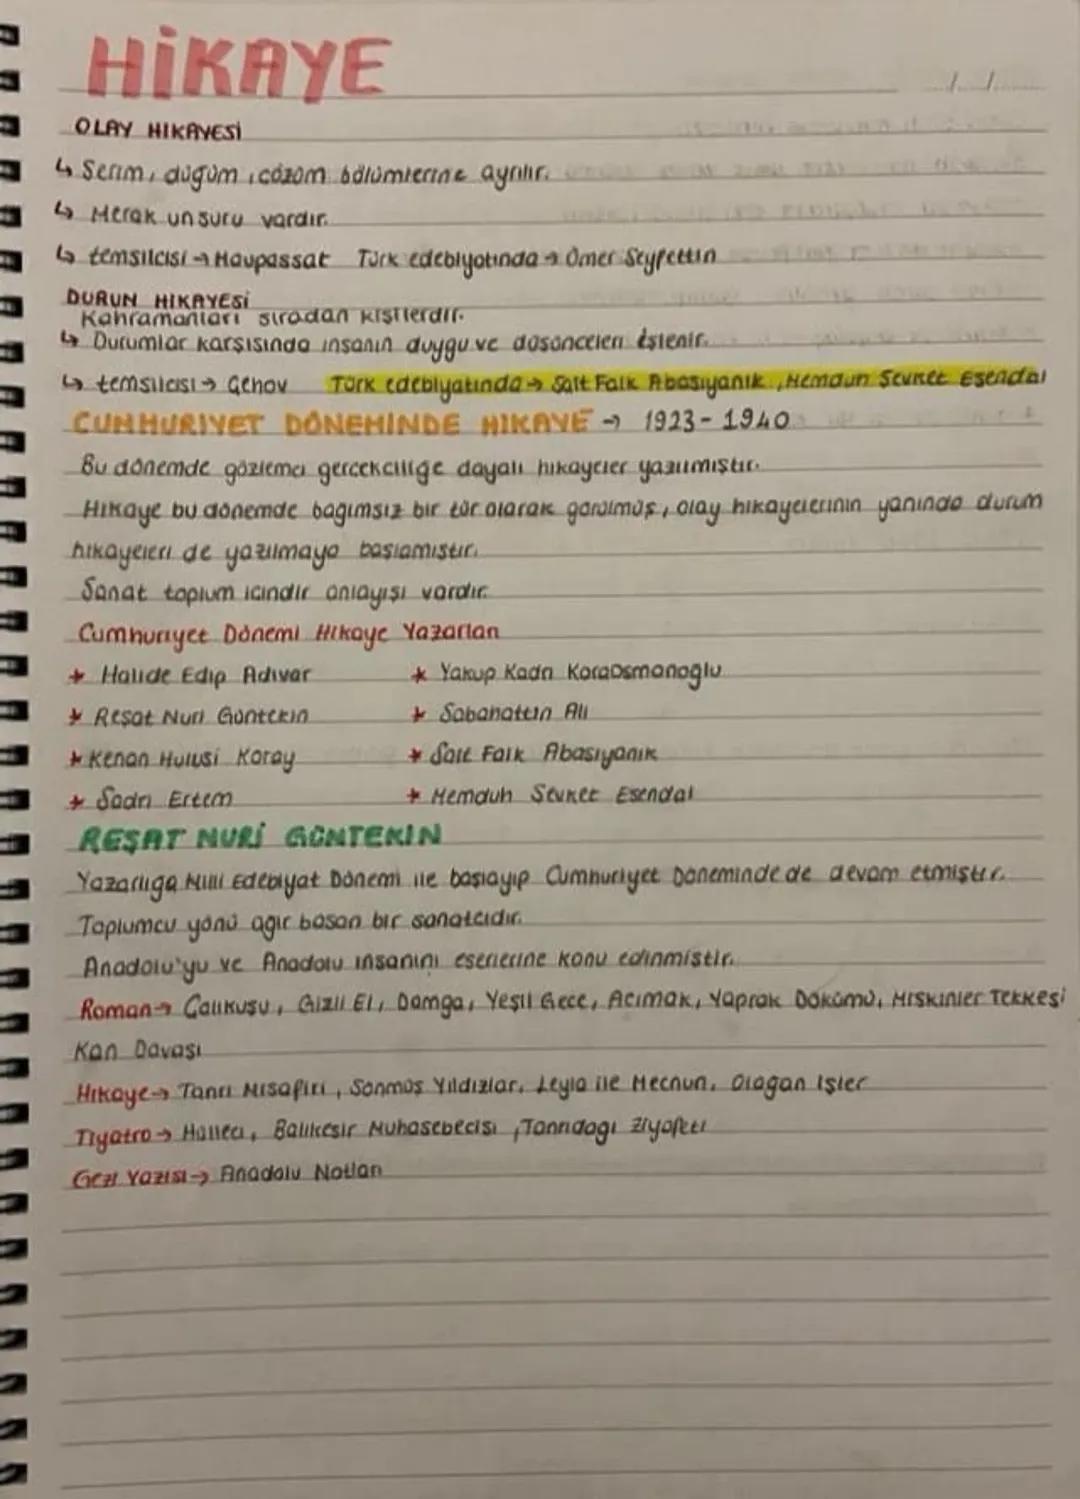 HİKAYE
OLAY HIKAYESİ
↳ Serim, düğüm, çözüm bölümlerine ayrılır.
↳ Merak unsuru vardır.
↳ temsilcisi → Maupassat Türk edebiyatında → Ömer Seyfettin
DURUN HIKAYESİ
Kahramanları sıradan kişilerdir.
↳ Durumlar karşısında insanın duygu ve düşünceleri işlenir.
↳ temsilcisi → Çehov Türk edebiyatında → Sait Faik Abasıyanık, Memduh Şevket Esendal
CUMHURIYET DÖNEMINDE HIKAYE → 1923-1940
Bu dönemde gözlemci gerçekçiliğe dayalı hikayeler yazılmıştır.
Hikaye bu dönemde bağımsız bir tür olarak görülmüş, olay hikayelerinin yanında durum
hikayeleri de yazılmaya başlamıştır.
Sanat toplum içindir anlayışı vardır.
Cumhuriyet Dönemi Hikaye Yazarları
* Halide Edip Adıvar * Yakup Kadri Karaosmanoğlu
* Reşat Nuri Güntekin * Sabahattin Ali
* Kenan Hulusi Koray * Sait Faik Abasıyanık
* Sadri Ertem * Memduh Şevket Esendal
REŞAT NURİ GÜNTEKIN
Yazarlığa Milli Edebiyat Dönemi ile başlayıp Cumhuriyet Döneminde de devam etmiştir.
Toplumcu yönü ağır basan bir sanatçıdır.
Anadolu'yu ve Anadolu insanını eserlerine konu edinmiştir.
Roman → Çalıkuşu, Gizli El, Damga, Yeşil Gece, Acımak, Yaprak Dökümü, Miskinler Tekkesi
Kan Davası
Hikaye → Tanrı Misafiri, Sönmüş Yıldızlar, Leyla ile Mecnun, Olağan İşler
Tiyatro → Hülleci, Balıkesir Muhasebecisi, Tanrıdağı Ziyafeti
Gezi Yazısı → Anadolu Notları